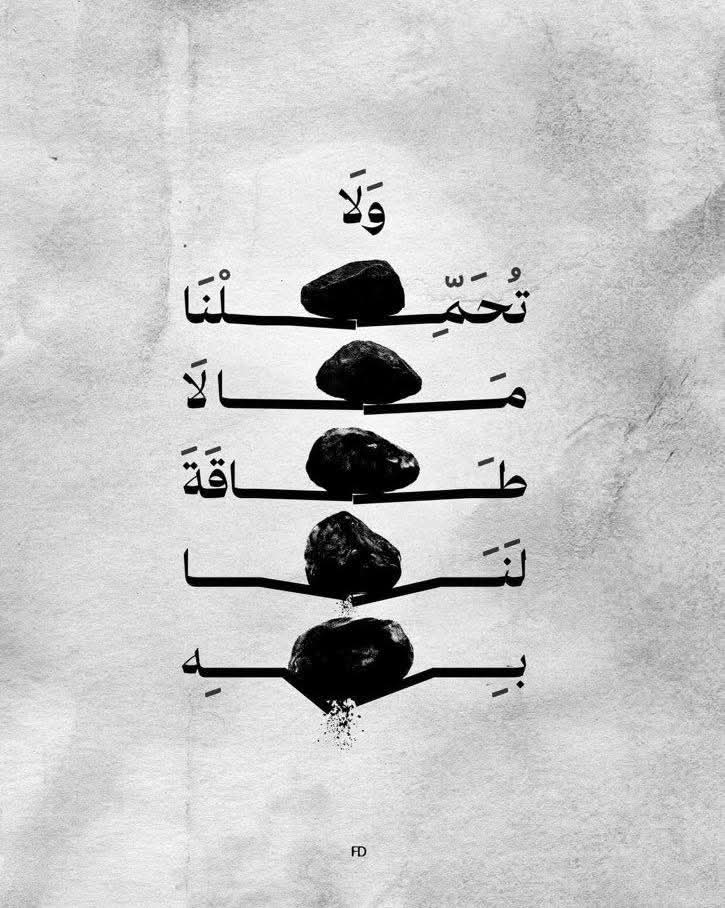 وَلَا
تُحَمِّلْنَا
مَا لَا
طَاقَةَ
لَنَا
بِهِ
FD